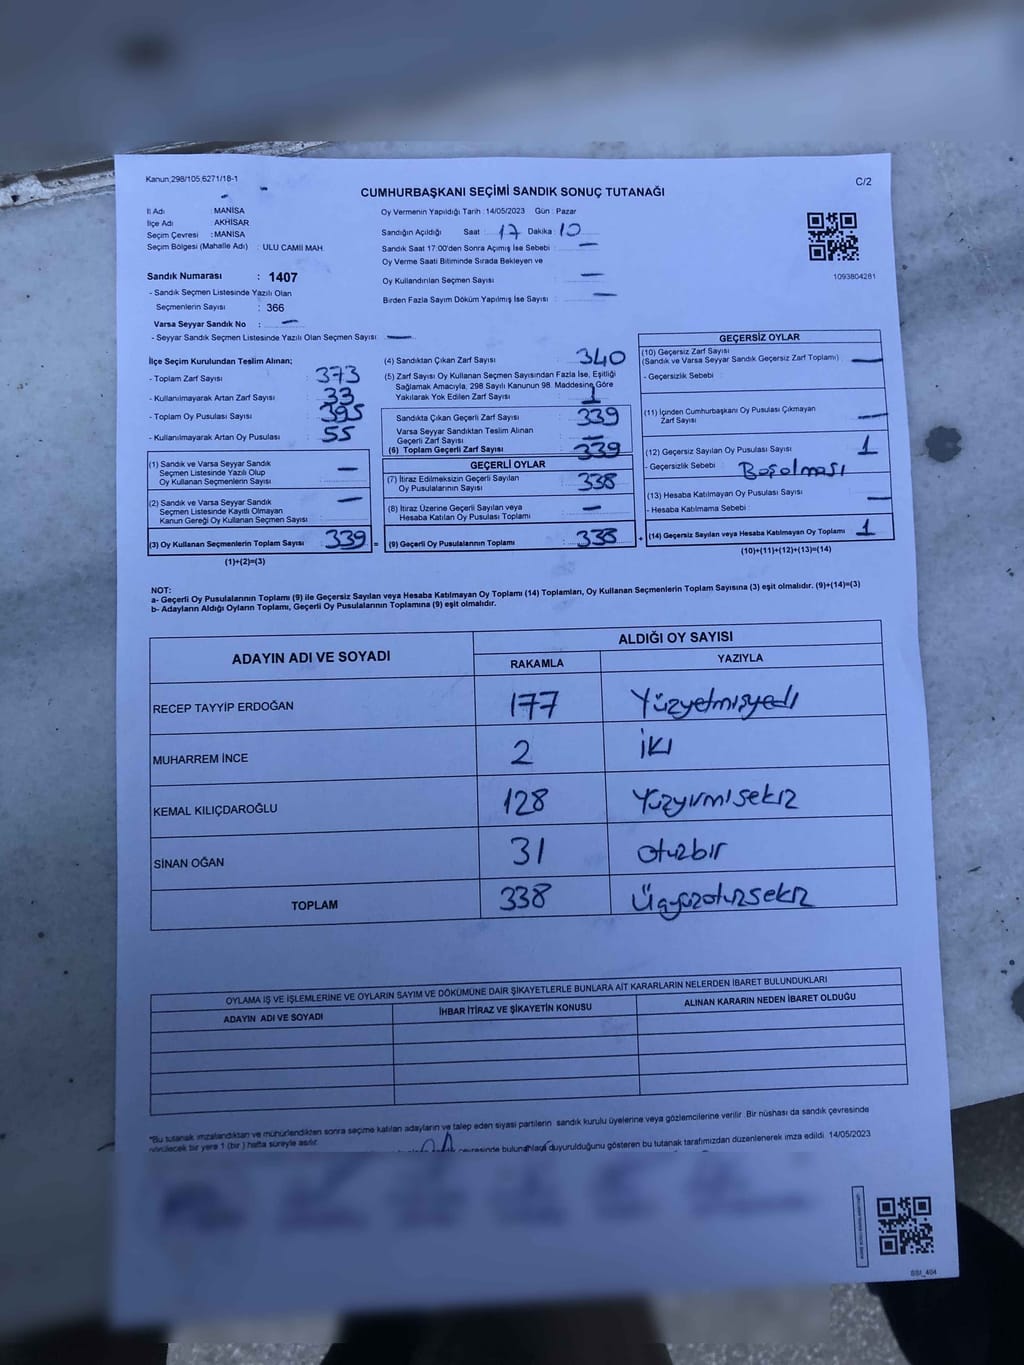 Kanun,298/105,6271/18-1
CUMHURBAŞKANI SEÇİMİ SANDIK SONUÇ TUTANAĞI
C/2
İl Adı : MANİSA
İlçe Adı : AKHİSAR
Seçim Çevresi : MANİSA
Seçim Bölgesi (Mahalle Adı) : ULU CAMİİ MAH.
Oy Vermenin Yapıldığı Tarih : 14/05/2023 Gün : Pazar
Sandığın Açıldığı Saat : 17 Dakika : 10
Sandık Saat 17:00'den Sonra Açımış İse Sebebi : —
Oy Verme Saati Bitiminde Sırada Bekleyen ve
Oy Kullandırılan Seçmen Sayısı : —
Birden Fazla Sayım Döküm Yapılmış İse Sayısı : —
1093804281
Sandık Numarası : 1407
- Sandık Seçmen Listesinde Yazılı Olan
Seçmenlerin Sayısı : 366
Varsa Seyyar Sandık No : —
- Seyyar Sandık Seçmen Listesinde Yazılı Olan Seçmen Sayısı : —
İlçe Seçim Kurulundan Teslim Alınan;
- Toplam Zarf Sayısı : 373
- Kullanılmayarak Artan Zarf Sayısı : 33
- Toplam Oy Pusulası Sayısı : 395
- Kullanılmayarak Artan Oy Pusulası : 55
(1) Sandık ve Varsa Seyyar Sandık
Seçmen Listesinde Yazılı Olup
Oy Kullanan Seçmenlerin Sayısı : —
(2) Sandık ve Varsa Seyyar Sandık
Seçmen Listesinde Kayıtlı Olmayan
Kanun Gereği Oy Kullanan Seçmen Sayısı : —
(3) Oy Kullanan Seçmenlerin Toplam Sayısı : 339 =
(1)+(2)=(3)
(4) Sandıktan Çıkan Zarf Sayısı : 340
(5) Zarf Sayısı Oy Kullanan Seçmen Sayısından Fazla İse, Eşitliği
Sağlamak Amacıyla, 298 Sayılı Kanunun 98. Maddesine Göre
Yakılarak Yok Edilen Zarf Sayısı : 1
Sandıkta Çıkan Geçerli Zarf Sayısı : 339
Varsa Seyyar Sandıktan Teslim Alınan
Geçerli Zarf Sayısı : —
(6) Toplam Geçerli Zarf Sayısı : 339
GEÇERLİ OYLAR
(7) İtiraz Edilmeksizin Geçerli Sayılan
Oy Pusulalarının Sayısı : 338
(8) İtiraz Üzerine Geçerli Sayılan veya
Hesaba Katılan Oy Pusulası Toplamı : —
(9) Geçerli Oy Pusulalarının Toplamı : 338 +
GEÇERSİZ OYLAR
(10) Geçersiz Zarf Sayısı
(Sandık ve Varsa Seyyar Sandık Geçersiz Zarf Toplamı) : —
- Geçersizlik Sebebi :
(11) İçinden Cumhurbaşkanı Oy Pusulası Çıkmayan
Zarf Sayısı : —
(12) Geçersiz Sayılan Oy Pusulası Sayısı : 1
- Geçersizlik Sebebi : Boş olması
(13) Hesaba Katılmayan Oy Pusulası Sayısı : —
- Hesaba Katılmama Sebebi :
(14) Geçersiz Sayılan veya Hesaba Katılmayan Oy Toplamı : 1
(10)+(11)+(12)+(13)=(14)
NOT:
a- Geçerli Oy Pusulalarının Toplamı (9) ile Geçersiz Sayılan veya Hesaba Katılmayan Oy Toplamı (14) Toplamları, Oy Kullanan Seçmenlerin Toplam Sayısına (3) eşit olmalıdır. (9)+(14)=(3)
b- Adayların Aldığı Oyların Toplamı, Geçerli Oy Pusulalarının Toplamına (9) eşit olmalıdır.
ADAYIN ADI VE SOYADI
ALDIĞI OY SAYISI
RAKAMLA YAZIYLA
RECEP TAYYİP ERDOĞAN 177 Yüzyetmişyedi
MUHARREM İNCE 2 iki
KEMAL KILIÇDAROĞLU 128 Yüzyirmisekiz
SİNAN OĞAN 31 otuzbir
TOPLAM 338 Üçyüzotuzsekiz
OYLAMA İŞ VE İŞLEMLERİNE VE OYLARIN SAYIM VE DÖKÜMÜNE DAİR ŞİKAYETLERLE BUNLARA AİT KARARLARIN NELERDEN İBARET BULUNDUKLARI
ADAYIN ADI VE SOYADI İHBAR İTİRAZ VE ŞİKAYETİN KONUSU ALINAN KARARIN NEDEN İBARET OLDUĞU
*Bu tutanak imzalandıktan ve mühürlendikten sonra seçime katılan adayların ve talep eden siyasi partilerin sandık kurulu üyelerine veya gözlemcilerine verilir. Bir nüshası da sandık çevresinde
görülecek bir yere 1 (bir) hafta süreyle asılır.
çevresinde bulunanlara duyurulduğunu gösteren bu tutanak tarafımızdan düzenlenerek imza edildi. 14/05/2023
SSI_404